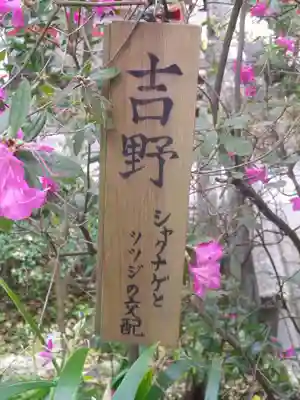 吉野
シャクナゲと
ツツジの交配